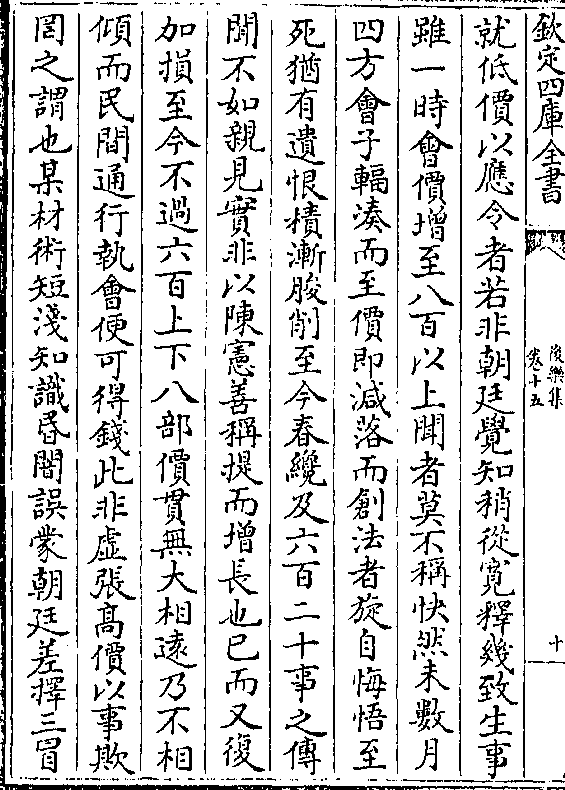 欽定四庫全書
後樂集
卷十五
十
就低價以應令者若非朝廷覺知稍從寛釋幾致生事
雖一時會價增至八百以上聞者莫不稱快然未數月
四方會子輻湊而至價即減落而創法者旋自悔悟至
死猶有遺恨積漸朘削至今春纔及六百二十事之傳
聞不如親見實非以陳憲善稱提而增長也已而又復
加損至今不過六百上下八部價貫無大相逺乃不相
傾而民間通行執會便可得錢此非虛張髙價以事欺
罔之謂也某材術短淺知識昏闇誤蒙朝廷差擇三冐